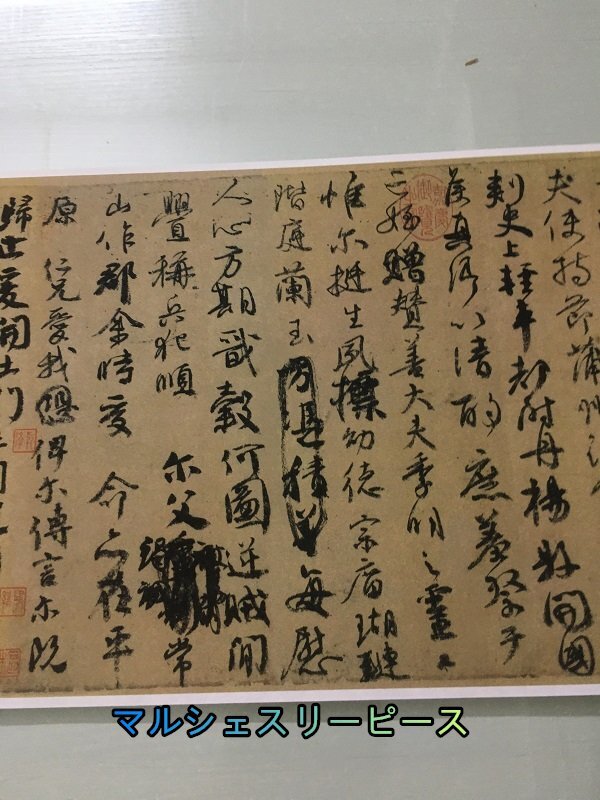 夫使持節蒲州諸
刺史上輕車都尉丹楊縣開國
侯真卿以清酌庶羞祭于
亡姪贈贊善大夫季明之靈曰
惟尔挺生夙標幼德宗廟瑚璉
階庭蘭玉方憑積善每慰
人心方期戩穀何圖逆賊閒
釁稱兵犯順 尔父 常
山作郡余時受 命亦在平
原 仁兄愛我 俾尔傳言尔既
歸止爰開土門土門既
マルシェスリーピース